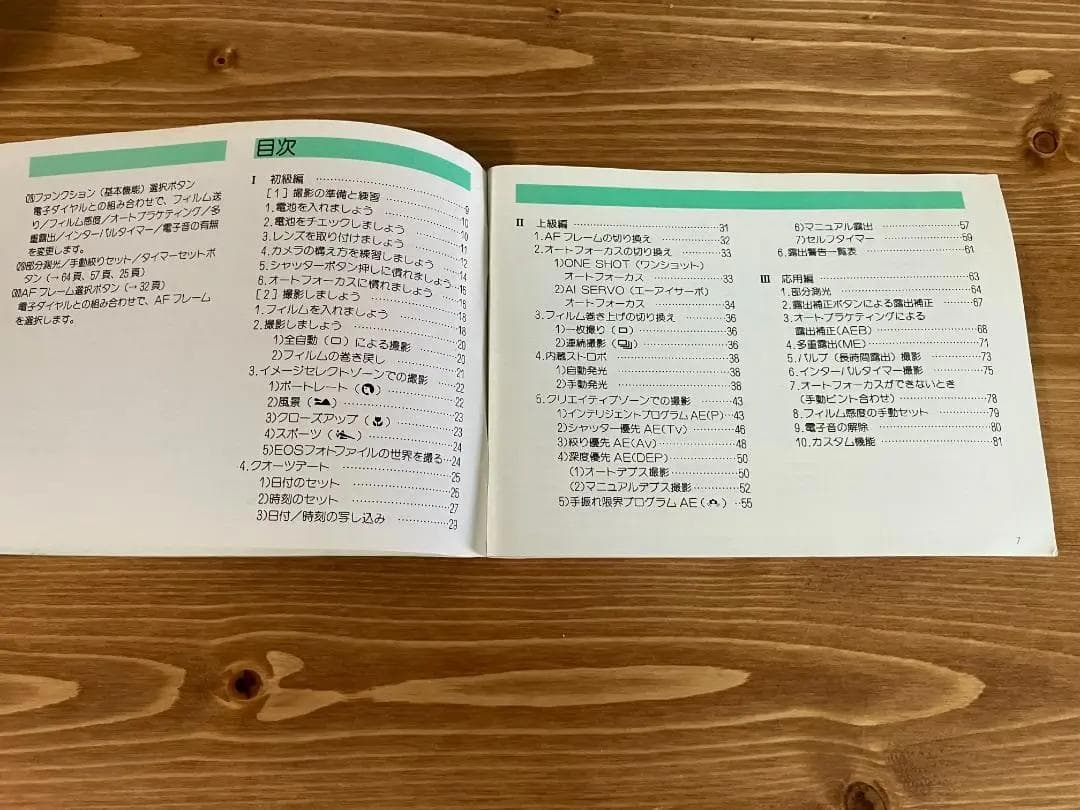 ㉘ファンクション(基本機能)選択ボタン
電子ダイヤルとの組み合わせで、フィルム送
り/フィルム感度/オートブラケティング/多
重露出/インターバルタイマー/電子音の有無
を変更します。
㉙部分測光/手動絞りセット/タイマーセットボ
タン(→64頁、57頁、25頁)
㉚AFフレーム選択ボタン(→32頁)
電子ダイヤルとの組み合わせで、AFフレーム
を選択します。
目次
I 初級編
[1]撮影の準備と練習 9
1.電池を入れましょう 10
2.電池をチェックしましょう 10
3.レンズを取り付けましょう 11
4.カメラの構え方を練習しましょう 12
5.シャッターボタン押しに慣れましょう 14
6.オートフォーカスに慣れましょう 16
[2]撮影しましょう 16
1.フィルムを入れましょう 18
2.撮影しましょう 18
1)全自動(□)による撮影 20
2)フィルムの巻き戻し 20
3.イメージセレクトゾーンでの撮影 21
1)ポートレート() 22
2)風景() 22
3)クローズアップ() 23
4)スポーツ() 23
5)EOSフォトファイルの世界を撮る 24
4.クオーツデート 24
1)日付のセット 25
2)時刻のセット 26
3)日付/時刻の写し込み 27
29
II 上級編 31
1.AFフレームの切り換え 32
2.オートフォーカスの切り換え 33
1)ONE SHOT(ワンショット)
オートフォーカス 33
2)AI SERVO(エーアイサーボ)
オートフォーカス 34
3.フィルム巻き上げの切り換え 36
1)一枚撮り(□) 36
2)連続撮影() 36
4.内蔵ストロボ 38
1)自動発光 38
2)手動発光 38
5.クリエイティブゾーンでの撮影 43
1)インテリジェントプログラムAE(P) 43
2)シャッター優先AE(Tv) 46
3)絞り優先AE(Av) 48
4)深度優先AE(DEP) 50
(1)オートデプス撮影 50
(2)マニュアルデプス撮影 52
5)手振れ限界プログラムAE() 55
6)マニュアル露出 57
7)セルフタイマー 59
6.露出警告一覧表 61
III 応用編 63
1.部分測光 64
2.露出補正ボタンによる露出補正 67
3.オートブラケティングによる
露出補正(AEB) 68
4.多重露出(ME) 71
5.バルブ(長時間露出)撮影 73
6.インターバルタイマー撮影 75
7.オートフォーカスができないとき
(手動ピント合わせ) 78
8.フィルム感度の手動セット 79
9.電子音の解除 80
10.カスタム機能 81
7